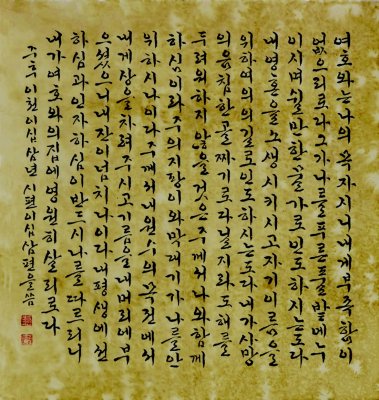 여호와는나의목자시니내게부족함이
없으리로다그가나를푸른풀밭에누
이시며쉴만한물가로인도하시는도다
내영혼을소생시키시고자기이름을
위하여의의길로인도하시는도다내가사망
의음침한골짜기로다닐지라도해를
두려워하지않을것은주께서나와함께
하심이라주의지팡이와막대기가나를안
위하시나이다주께서내원수의목전에서
내게상을차려주시고기름을내머리에부
으셨으니내잔이넘치나이다내평생에선
하심과인자하심이반드시나를따르리니
내가여호와의집에영원히살리로다
주후이천이십삼년시편이십삼편을씀